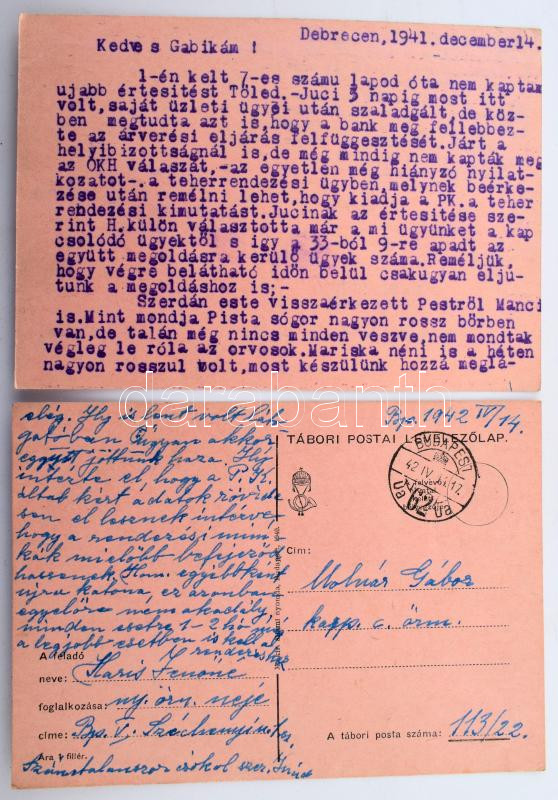 Debrecen,1941.december14.
Kedves Gabikám !
1-én kelt 7-es számu lapod óta nem kaptam
ujabb értesitést Tőled.-Juci 3 napig most itt
volt,saját üzleti ügyei után szaladgált,de köz-
ben megtudta azt is,hogy a bank meg fellebbez-
te az árverési eljárás felfüggesztését.Járt a
helyibizottságnál is,de még mindig nem kapták meg
az OKH válaszát,-az egyetlen még hiányzó nyilat-
kozatot-.a teherrendezési ügyben,melynek beérke-
zése után remélni lehet,hogy kiadja a PK.a teher
rendezési kimutatást.Jucinak az értesitése sze-
rint H.külön választotta már a mi ügyünket a kap
csolódó ügyektől s igy a 33-ból 9-re apadt az
együtt megoldásra kerülő ügyek száma.Reméljük,
hogy végre belátható időn belül csakugyan eljú-
tunk a megoldáshoz is;-
Szerdán este visszaérkezett Pestről Manci
is.Mint mondja Pista sógor nagyon rossz bőrben
van,de talán még nincs minden veszve,nem mondtak
végleg le róla az orvosok.Mariska néni is a héten
nagyon rosszul volt,most készülünk hozzá meglá-
Bp. 1942 IV/14.
TÁBORI POSTAI LEVELEZŐLAP.
BUDAPEST
42 IV. 17.
Cím:
Molnár Gábor
kapp. c. őrm.
A tábori posta száma: 113/22.
elég. Hg is
együtt jöttünk haza. Hg
intézte el, hogy a P.K.
által kért adatok rövide-
sen el lesznek intézve
hogy a rendezési mun-
kák mielőbb befejezést
ujra katona, ez azonban
egyelőre nem akadály,
minden esetre 1-2 hó
a legjobb esetben is kell a
rendezéshez
A feladó
neve: Haris Jenőné
foglalkozása: ny. őrn. neje
címe: Bp. V. Széchenyi u.
Ára 1 fillér.
Számtalanszor csókol szer.